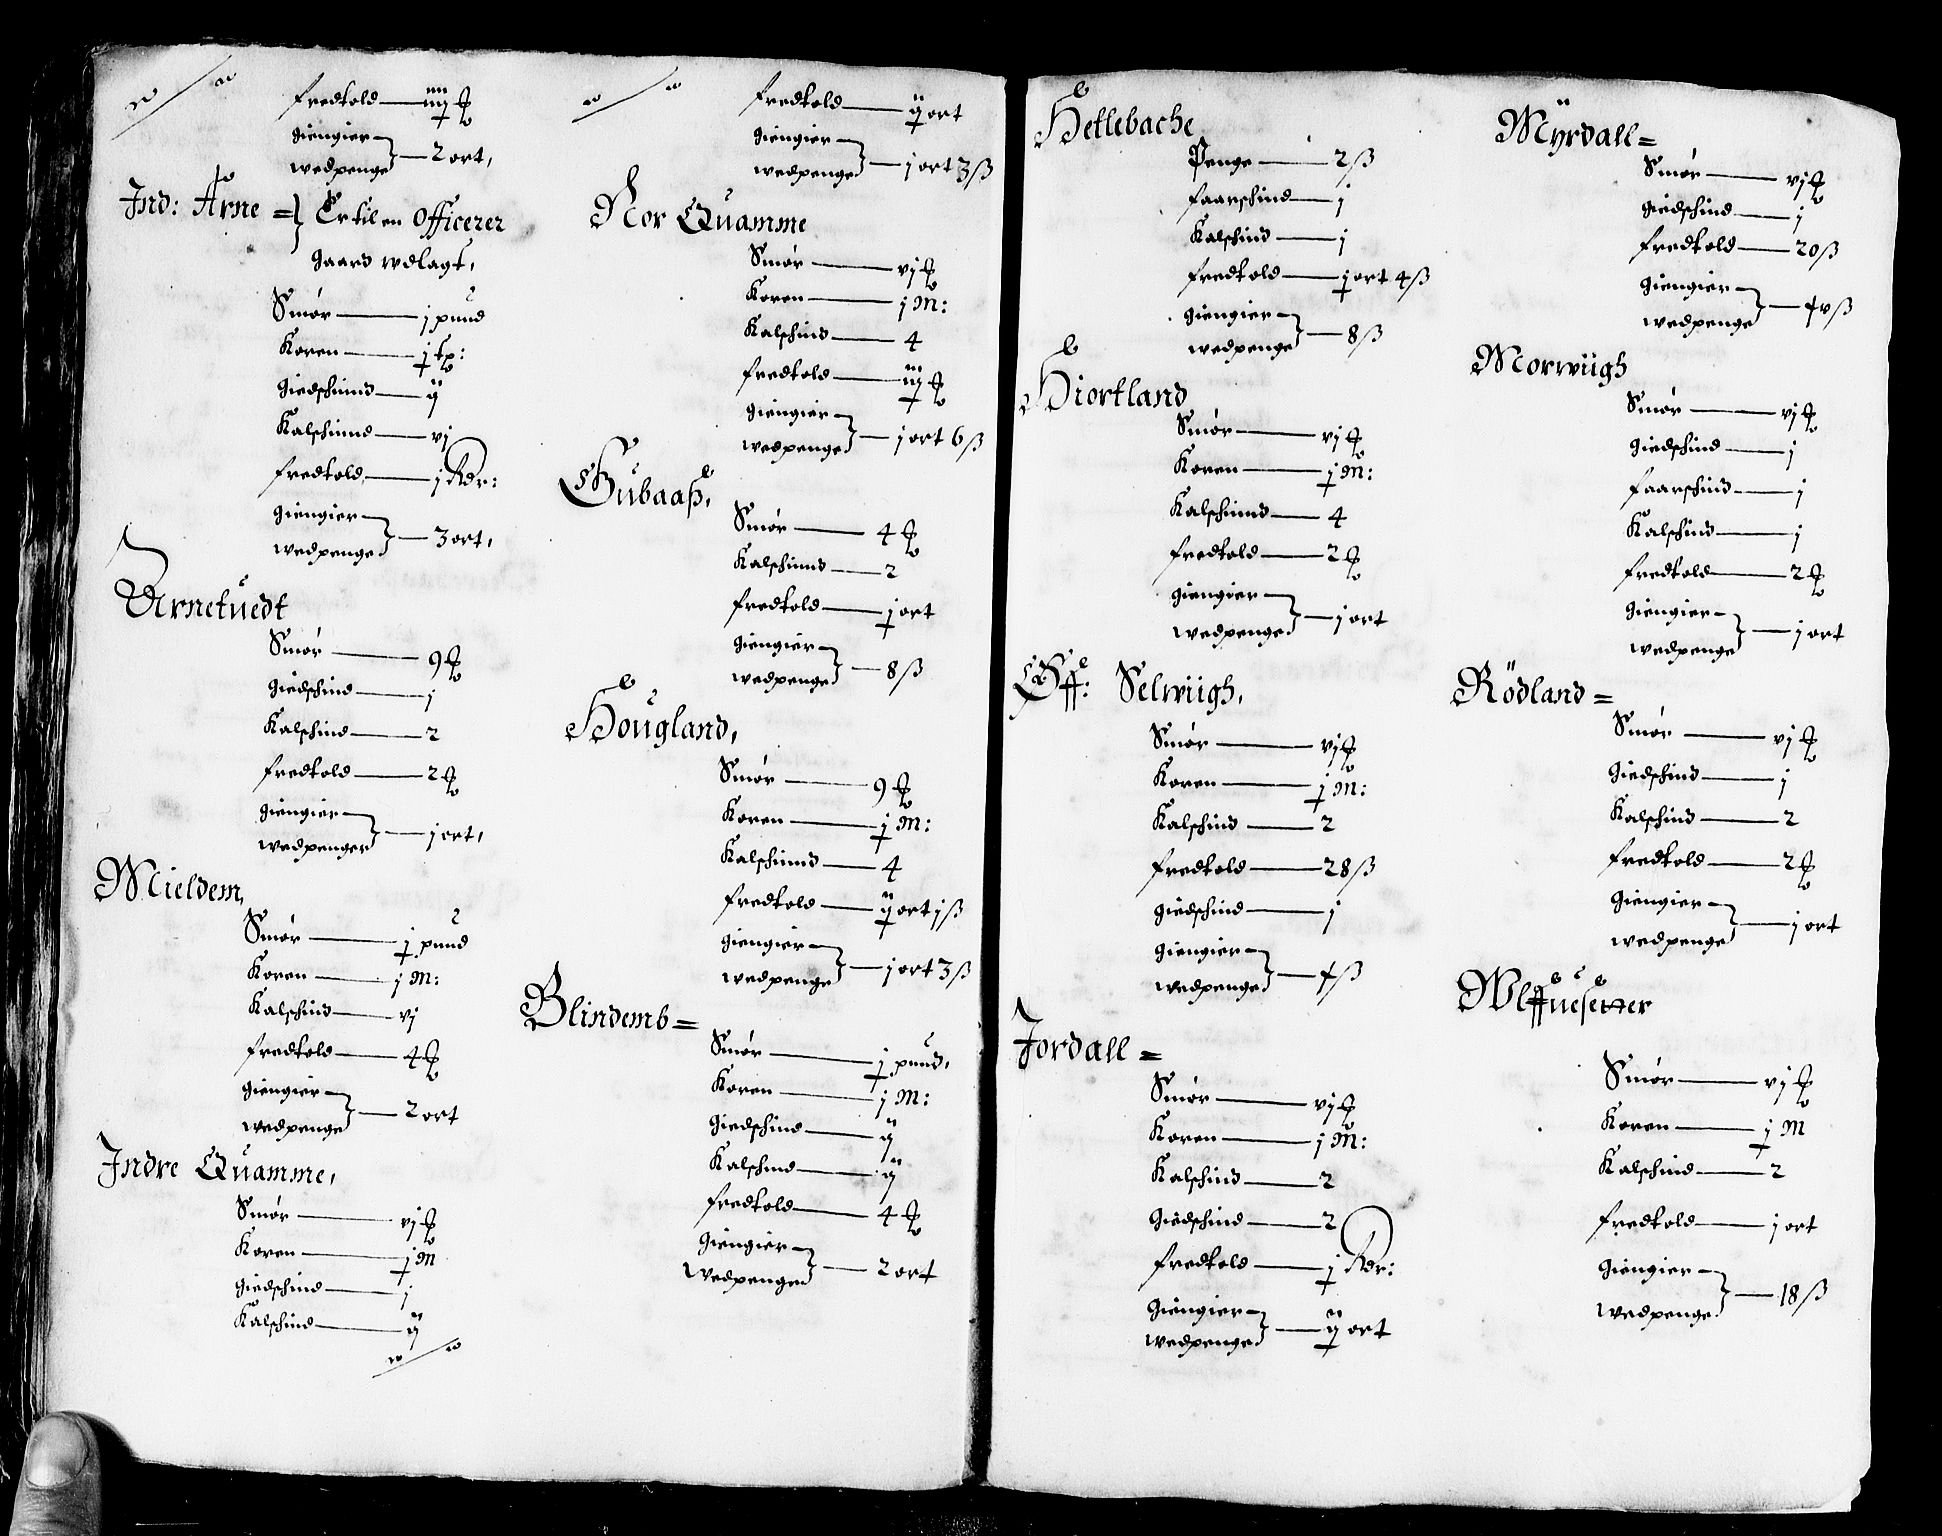 fredtold — iiij ℔
giengier
wedpenge } — 2 ort,
Ind: Arne = } Er til en Officerer
gaard vdlagt,
Smør — j pund
Koren — j tp:
giedschind — ij
Kalschind — vj
fredtold — j Rdr:
giengier
wedpenge } — 3 ort,
Arnetuedt
Smør — 9 ℔
giedschind — j
Kalschind — 2
fredtold — 2 ℔
giengier
wedpenger } — j ort,
Mieldem,
Smør — j pund
Koren — j M:
Kalschind — vj
fredtold — 4 ℔
giengier
wedpenge } — 2 ort
Indre Quamme,
Smør — vj ℔
Koren — j M
giedschind — j
Kalschind — ij
fredtold — ij ort
giengier
wedpenge } — j ort 3 ß
Nor Quamme
Smør — vj ℔
Koren — j M:
Kalschind — 4
fredtold — iij ℔
giengier
wedpenge } — j ort 6 ß
Gubaaß,
Smør — 4 ℔
Kalschind — 2
fredtold — j ort
giengier
wedpenge } — 8 ß
Hougland,
Smør — 9 ℔
Koren — j M:
Kalschind — 4
fredtold — ij ort j ß
giengier
wedpenge } — j ort 3 ß
Blindemb =
Smør — j pund,
Koren — j M:
giedschind — ij
Kalschind — ij
fredtold — 4 ℔
giengier
wedpenge } — 2 ort
Hetlebache
Penge — 2 ß
faarschind — j
Kalschind — j
fredtold — j ort 4 ß
giengier
wedpenge } — 8 ß
Hiortland
Smør — vj ℔
Koren — j M:
Kalschind — 4
fredtold — 2 ℔
giengier
wedpenge } — j ort
Øff: Selwiigh,
Smør — vj ℔
Koren — j M:
Kalschind — 2
fredtold — 28 ß
giedschind — j
giengier
wedpenge } — + ß
Jordall =
Smør — vj ℔
Koren — j M:
Kalschind — 2
Giedschind — 2
fredtold — j Rdr:
giengier
wedpenge } — ij ort
Myrdall =
Smør — vj ℔
giedschind — j
fredtold — 20 ß
giengier
wedpenge } — +v ß
Morwiigh
Smør — vj ℔
giedschind — j
faarschind — j
Kalschind — j
fredtold — 2 ℔
giengier
wedpenge } — j ort
Rödland =
Smør — vj ℔
giedschind — j
Kalschind — 2
fredtold — 2 ℔
giengier
wedpenge } — j ort
Wlffuesetter
Smør — vj ℔
Koren — j M
Kalschind — 2
fredtold — j ort
giengier
wedpenge } — 18 ß